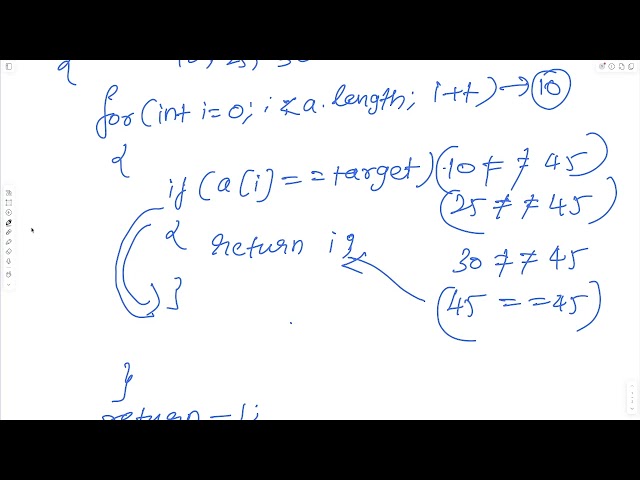 { 10, 25, 30
for(int i=0; i<a.length; i++) → 10
{
if (a[i]==target) (10 ≠ ≠ 45)
(25 ≠ ≠ 45)
{ return i; 30 ≠ ≠ 45
} (45 == 45)
}
return -1;